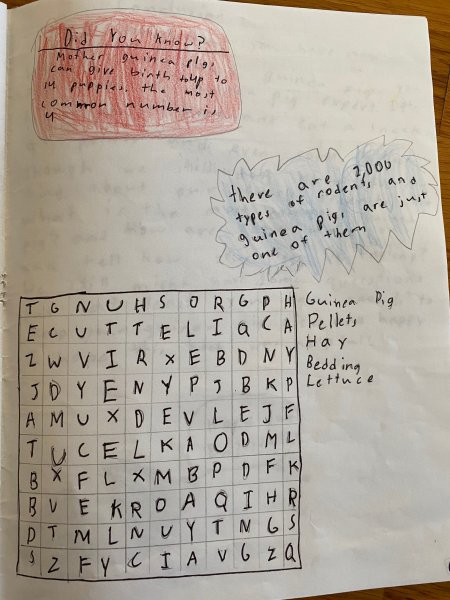 Did You Know?
Mother guinea pigs
can give birth to up to
14 puppies. the most
common number is
4
there are 2,000
types of rodents and
guinea pigs are just
one of them
T G N U H S O R G P H
E C U T T E L I Q C A
Z W V I R X E B D N Y
J D Y E N Y P J B K P
A M U X D E V L E J F
T U C E L K A O D M L
B X F L X M B P D F K
B V E K R O A Q I H R
D T M L N U Y T N G S
S Z F Y C I A V G Z Q
Guinea Pig
Pellets
Hay
Bedding
Lettuce